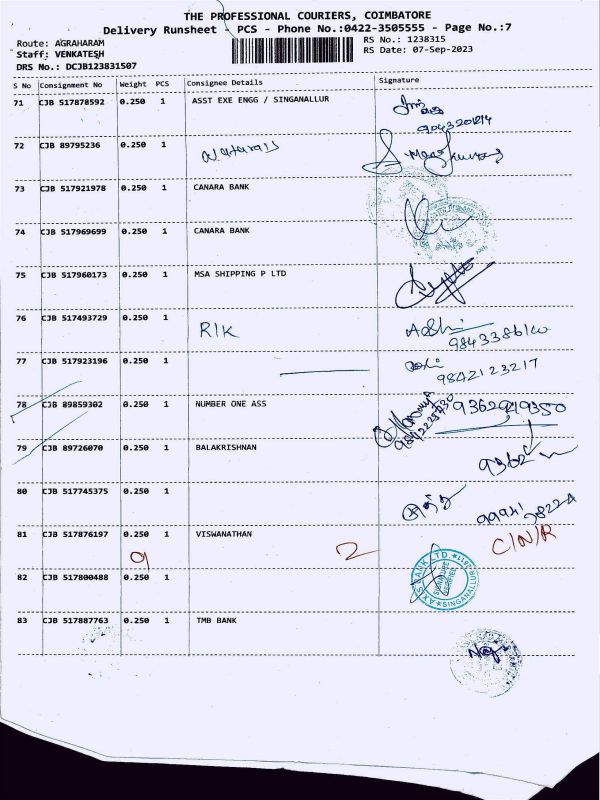 THE PROFESSIONAL COURIERS, COIMBATORE
Delivery Runsheet PCS - Phone No.:0422-3505555 - Page No.:7
Route: AGRAHARAM
RS No.: 1238315
Staff: VENKATESH
RS Date: 07-Sep-2023
DRS No.: DCJB123831507
S No Consignment No Weight PCS Consignee Details Signature
71 CJB 517878592 0.250 1 ASST EXE ENGG / SINGANALLUR
72 CJB 89795236 0.250 1
73 CJB 517921978 0.250 1 CANARA BANK
74 CJB 517969699 0.250 1 CANARA BANK
75 CJB 517960173 0.250 1 MSA SHIPPING P LTD
76 CJB 517493729 0.250 1 RIK
77 CJB 517923196 0.250 1
9842123217
78 CJB 89859302 0.250 1 NUMBER ONE ASS
79 CJB 89726070 0.250 1 BALAKRISHNAN
80 CJB 517745375 0.250 1
81 CJB 517876197 0.250 1 VISWANATHAN C/N/R
9 2
82 CJB 517800488 0.250 1
AXIS BANK LTD.
SIGNATURE VERIFIED
SINGANALLUR
83 CJB 517887763 0.250 1 TMB BANK